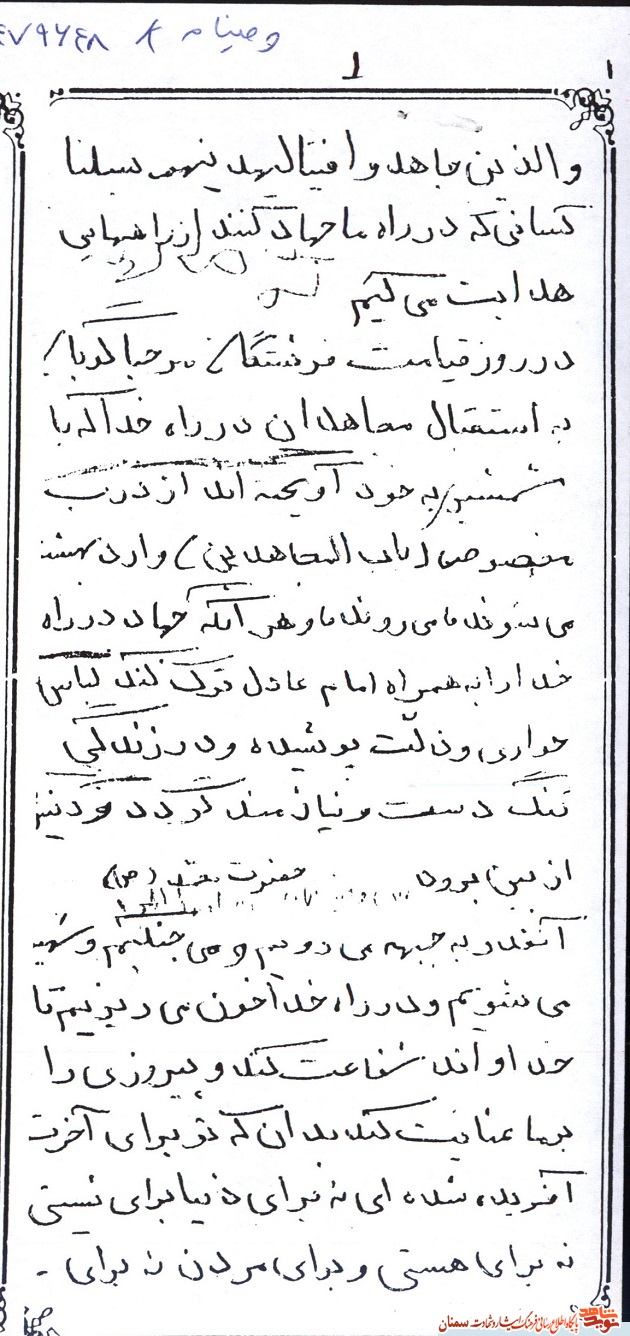 وصینامه ۸۷۹۶۴۸
1
والذین جاهدوا فینا لیهدینهم سبلنا
کسانی که در راه ما جهاد کنند از راههایی
هدایت می کنیم
در روز قیامت فرشتگان مرحبا گویان
به استقبال مجاهدان در راه خدا که با
شمشیر به خود آویخته اند از درب
مخصوص (باب المجاهدین) وارد بهشت
می شوند و هر آنکه جهاد در راه
خدا را به همراه امام عادل ترک کند لباس
خواری و ذلّت پوشیده و در زندگی
تنگ دست و نیازمند گردد و دینش
از بین برود حضرت محمد (ص)
آنقدر به جبهه می رویم و می جنگیم و شهید
می شویم و در راه خدا خون می ریزیم تا
خداوند شفاعت کند و پیروزی را
بر ما عنایت کند بدان که تو برای آخرت
آفریده شده ای نه برای دنیا برای نیستی
نه برای هستی و برای مردن نه برای -
نوید شاهد پایگاه اطلاع رسانی فرهنگ ایثار و شهادت سمنان